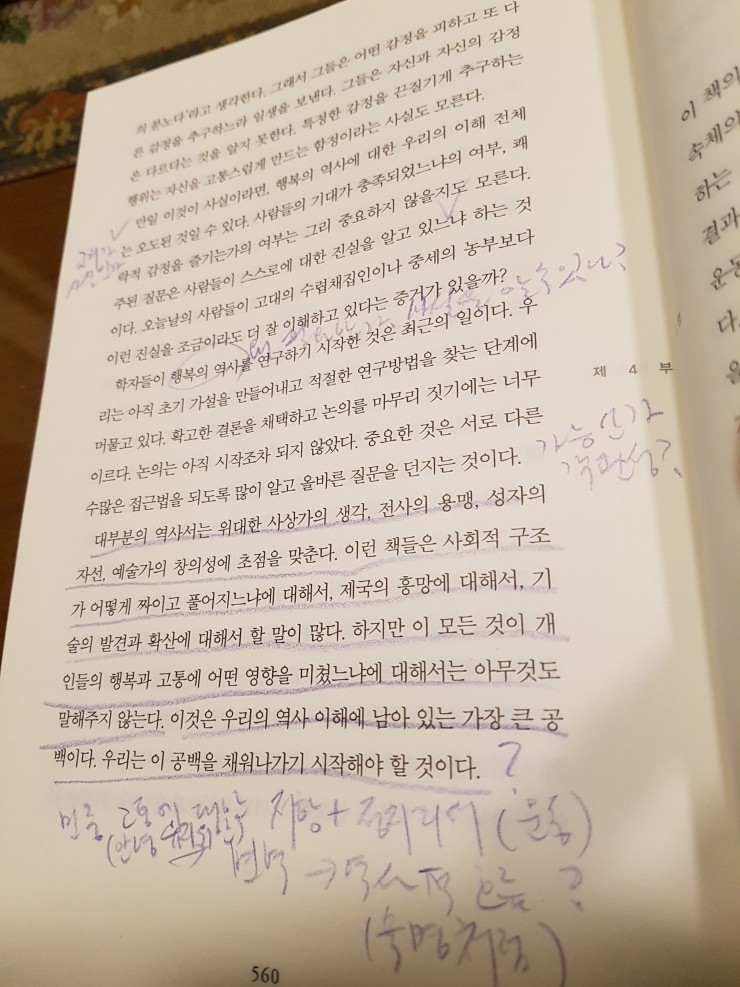 의 분노다'라고 생각한다. 그래서 그들은 어떤 감정을 피하고 또 다
른 감정을 추구하느라 일생을 보낸다. 그들은 자신과 자신의 감정
은 다르다는 것을 알지 못한다. 특정한 감정을 끈질기게 추구하는
행위는 자신을 고통스럽게 만드는 함정이라는 사실도 모른다.
만일 이것이 사실이라면, 행복의 역사에 대한 우리의 이해 전체
는 오도된 것일 수 있다. 사람들의 기대가 충족되었느냐의 여부, 쾌
락적 감정을 즐기는가의 여부는 그리 중요하지 않을지도 모른다.
주된 질문은 사람들이 스스로에 대한 진실을 알고 있느냐 하는 것
이다. 오늘날의 사람들이 고대의 수렵채집인이나 중세의 농부보다
이런 진실을 조금이라도 더 잘 이해하고 있다는 증거가 있을까?
알 수 있나?
학자들이 행복의 역사를 연구하기 시작한 것은 최근의 일이다. 우
리는 아직 초기 가설을 만들어내고 적절한 연구방법을 찾는 단계에
머물고 있다. 확고한 결론을 채택하고 논의를 마무리 짓기에는 너무
이르다. 논의는 아직 시작조차 되지 않았다. 중요한 것은 서로 다른
수많은 접근법을 되도록 많이 알고 올바른 질문을 던지는 것이다.
가능한가
객관성?
대부분의 역사서는 위대한 사상가의 생각, 전사의 용맹, 성자의
자선, 예술가의 창의성에 초점을 맞춘다. 이런 책들은 사회적 구조
가 어떻게 짜이고 풀어지느냐에 대해서, 제국의 흥망에 대해서, 기
술의 발견과 확산에 대해서 할 말이 많다. 하지만 이 모든 것이 개
인들의 행복과 고통에 어떤 영향을 미쳤느냐에 대해서는 아무것도
말해주지 않는다. 이것은 우리의 역사 이해에 남아 있는 가장 큰 공
백이다. 우리는 이 공백을 채워나가기 시작해야 할 것이다. ?
민중 저항 + (운동)
(안녕 → 역사적 흐름?
(숙명처럼)
560
제 4 부
이 책의
숙체의
하는
결과
운동
다.
을